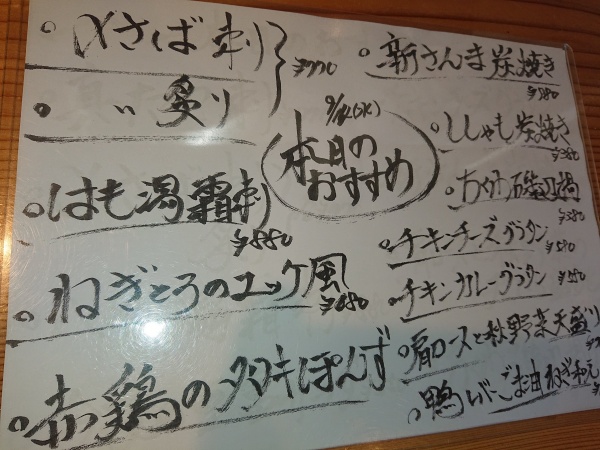 〆さば刺
〃 炙り
¥770
はも湯霜刺
¥880
ねぎとろのユッケ風
¥680
赤鶏のタタキぽんず
本日の
おすすめ
新さんま炭焼き
¥580
ししゃも炭焼き
¥380
ちくわ磯辺揚
¥380
チキンチーズグラタン
¥590
チキンカレーグラタン
肩ロースと秋野菜天盛り
鴨レバーごま油ねぎ和え